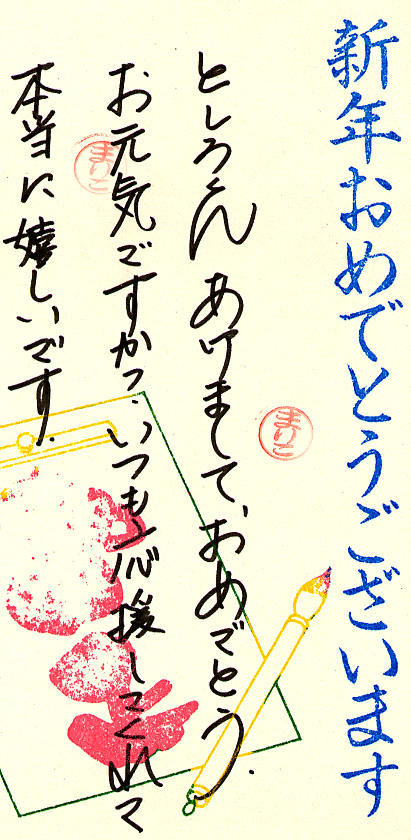 新年おめでとうございます
としろくん あけまして、おめでとう.
お元気ですか?いつも応援してくれて
本当に嬉しいです.
まりこ
まりこ